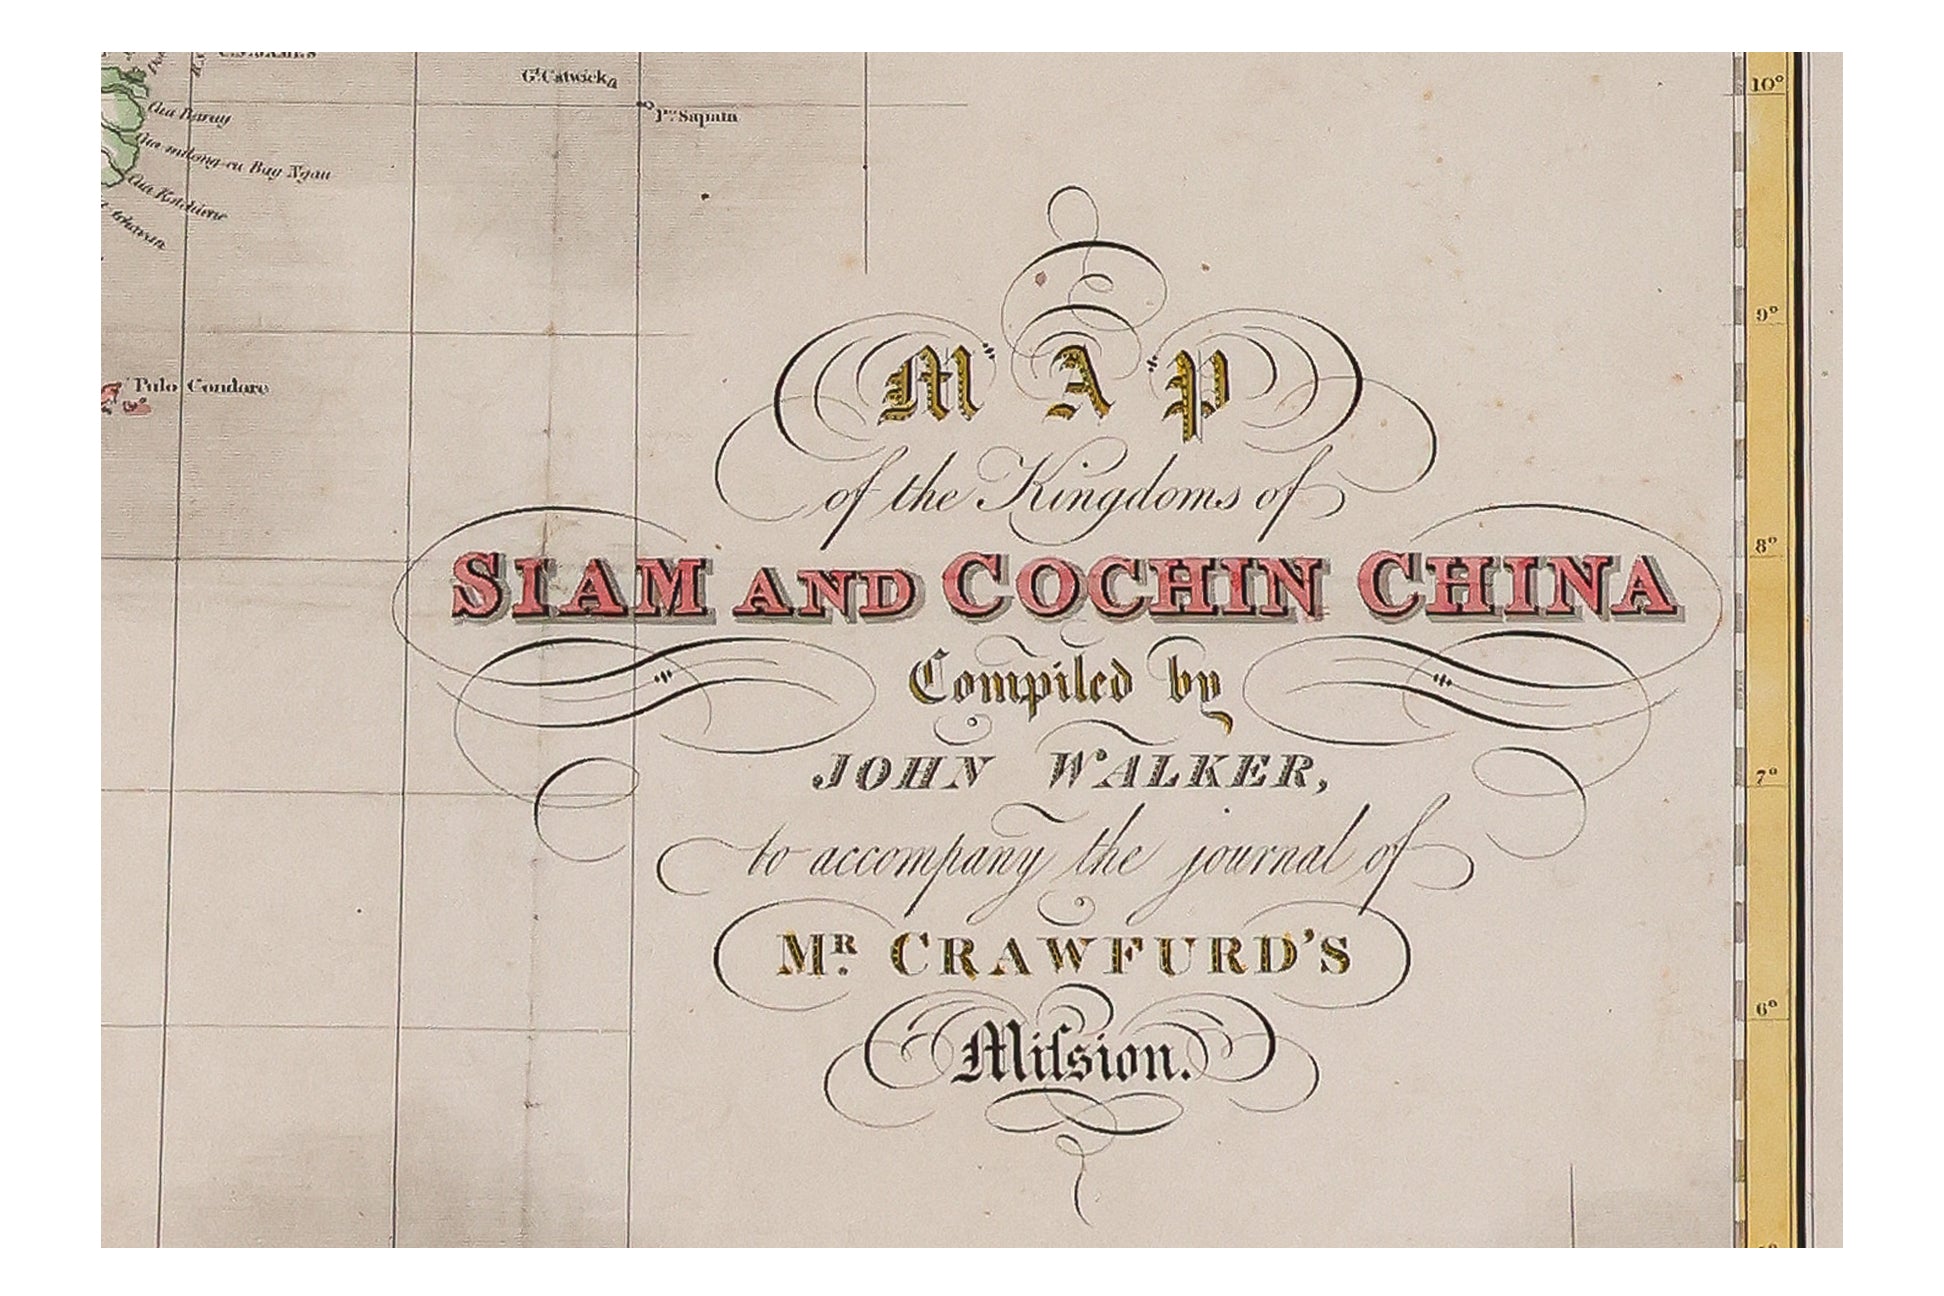 C. St. JAMES
Gt. Catwicka
Po. Sapata
Cua Baray
Cua milong cu Bay Ngau
Pulo Condore
10°
9°
8°
7°
6°
MAP
of the Kingdoms of
SIAM AND COCHIN CHINA
Compiled by
JOHN WALKER,
to accompany the journal of
MR. CRAWFURD'S
Miſsion.